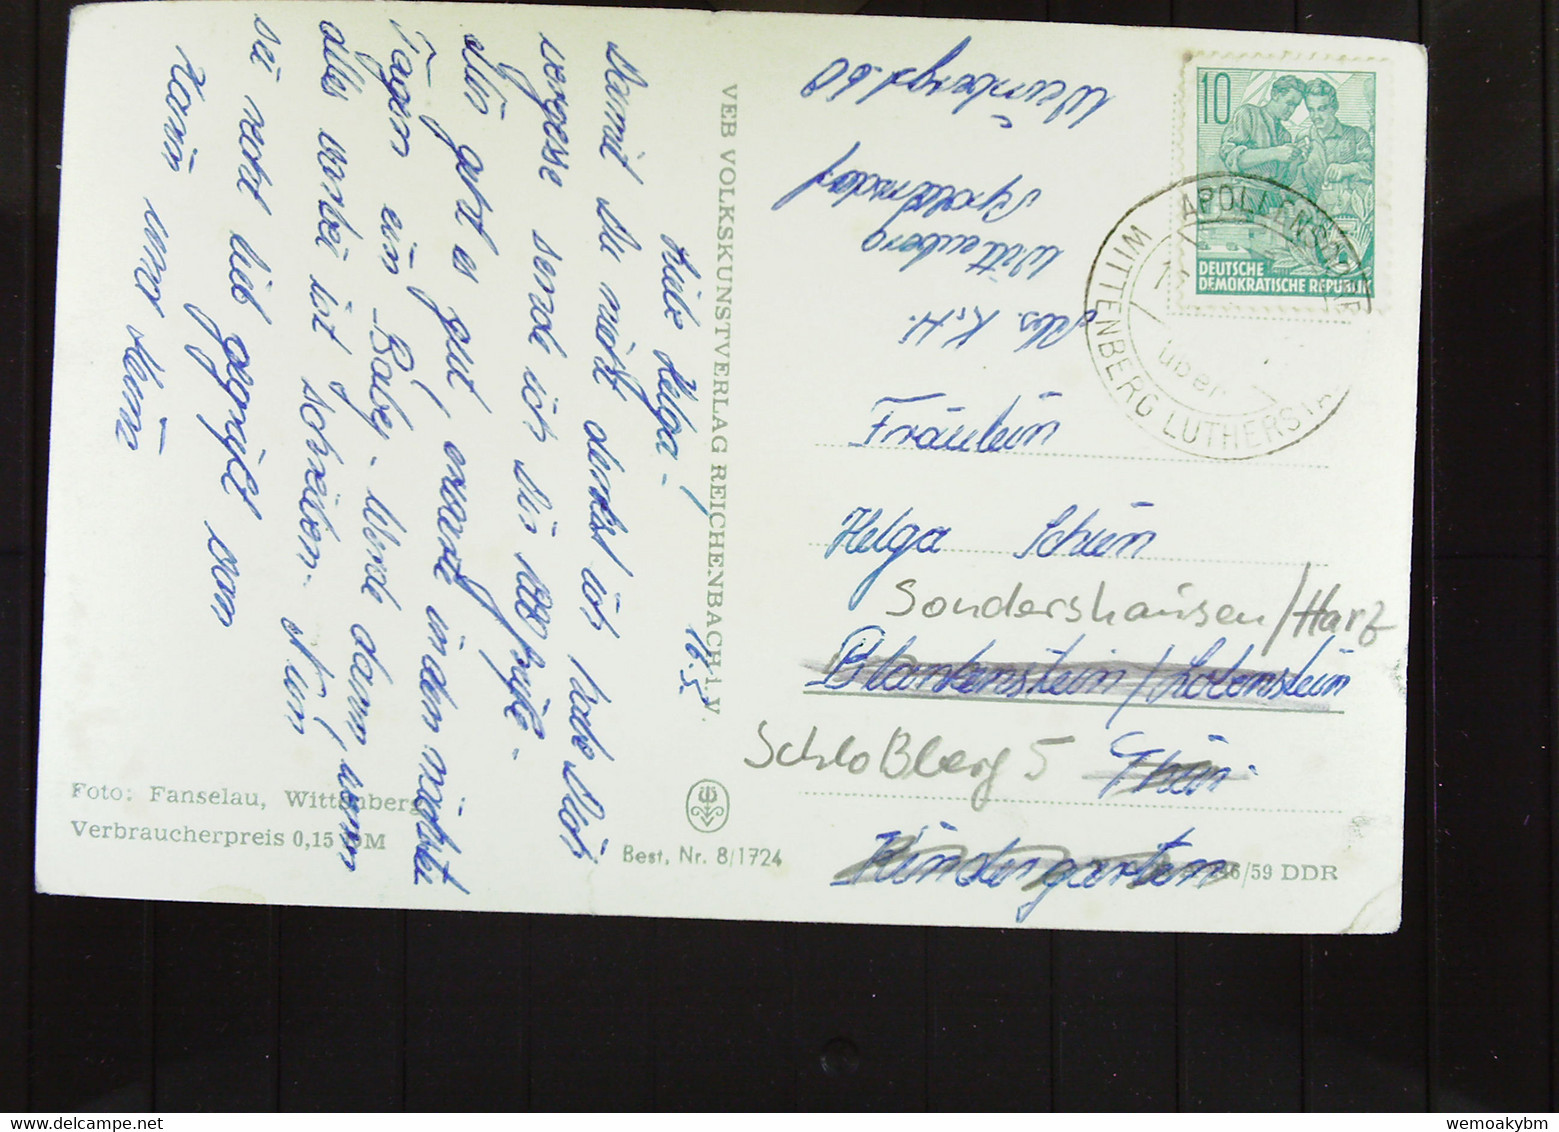 Liebe Helga! 16.5.
Damit Du nicht denkst ich habe Dich
vergesse sende ich Dir 1000 Grüße.
Mir geht es gut, erwarte in den nächsten
Tagen ein Baby. Werde dann, wenn
alles vorbei ist schreiben. Nun
sei recht lieb gegrüßt von
Foto: Fanselau, Wittenberg
Verbraucherpreis 0,15 DM
VEB VOLKSKUNSTVERLAG REICHENBACH i. V.
Best. Nr. 8/1724
Abs. K. H.
Wittenberg
Apollensdorf
10
DEUTSCHE
DEMOKRATISCHE REPUBLIK
APOLLENSDORF
über
WITTENBERG LUTHERSTADT
Fräulein
Helga Schein
Sondershausen/Harz
Blankenstein/Lobenstein
Schloßberg 5 Thür.
Kindergarten
6/59 DDR
wemoakybm